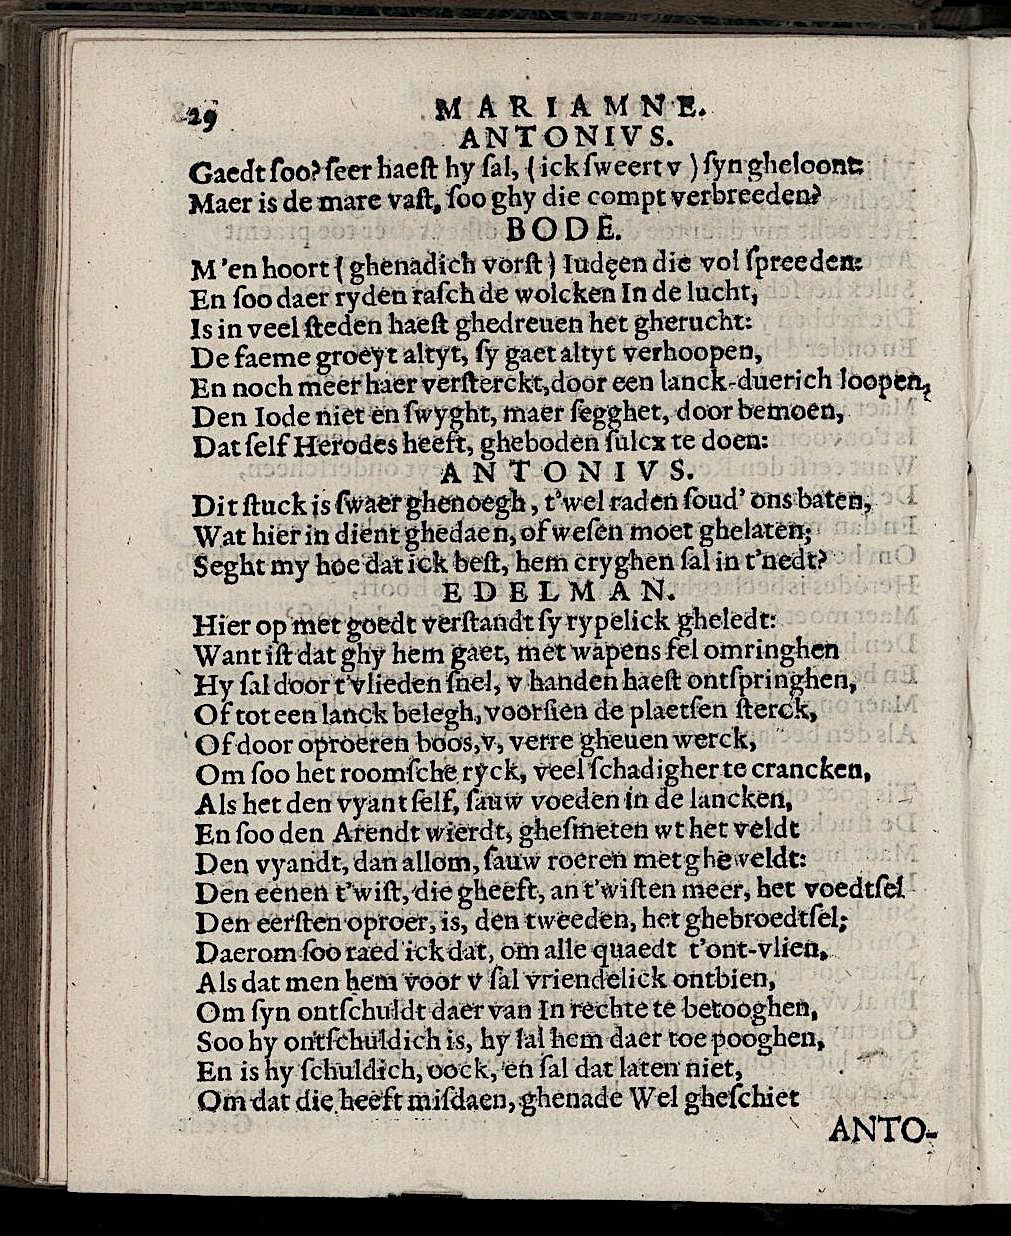 29
MARIAMNE.
ANTONIVS.
Gaedt ſoo? ſeer haeſt hy ſal, (ick ſweert v) ſyn gheloont:
Maer is de mare vaſt, ſoo ghy die compt verbreeden?
BODE.
M'en hoort (ghenadich vorſt) Iudęen die vol ſpreeden:
En ſoo daer ryden raſch de wolcken In de lucht,
Is in veel ſteden haeſt ghedreuen het gherucht:
De faeme groeyt altyt, ſy gaet altyt verhoopen,
En noch meer haer verſterckt, door een lanck-duerich loopen,
Den Iode niet en ſwyght, maer ſegghet, door bemoen,
Dat ſelf Herodes heeft, gheboden ſulcx te doen:
ANTONIVS.
Dit ſtuck is ſwaer ghenoegh, t'wel raden ſoud' ons baten,
Wat hier in dient ghedaen, of weſen moet ghelaten;
Seght my hoe dat ick beſt, hem cryghen ſal in t'nedt?
EDELMAN.
Hier op met goedt verſtandt ſy rypelick gheledt:
Want iſt dat ghy hem gaet, met wapens fel omringhen
Hy ſal door t'vlieden ſnel, v handen haeſt ontſpringhen,
Of tot een lanck belegh, voorſien de plaetſen ſterck,
Of door oproeren boos, v, verre gheuen werck,
Om ſoo het roomſche ryck, veel ſchadigher te crancken,
Als het den vyant ſelf, ſauw voeden in de lancken,
En ſoo den Arendt wierdt, gheſmeten wt het veldt
Den vyandt, dan allom, ſauw roeren met gheweldt:
Den eenen t'wiſt, die gheeft, an t'wiſten meer, het voedtſel
Den eerſten oproer, is, den tweeden, het ghebroedtſel;
Daerom ſoo raed ick dat, om alle quaedt t'ont-vlien,
Als dat men hem voor v ſal vriendelick ontbien,
Om ſyn ontſchuldt daer van In rechte te betooghen,
Soo hy ontſchuldich is, hy ſal hem daer toe pooghen,
En is hy ſchuldich, oock, en ſal dat laten niet,
Om dat die heeft miſdaen, ghenade Wel gheſchiet
ANTO-